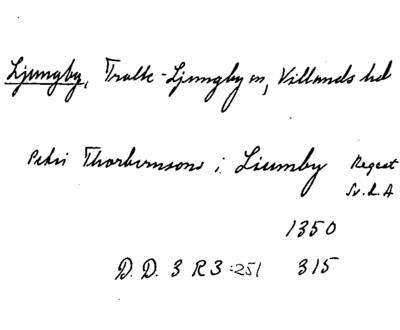 Ljungby, Trolle-Ljungby sn, Villands hd
Petri Thorbernsons i Liumby Regest
Sv. R.A
1350
D. D. 3 R 3:251 315